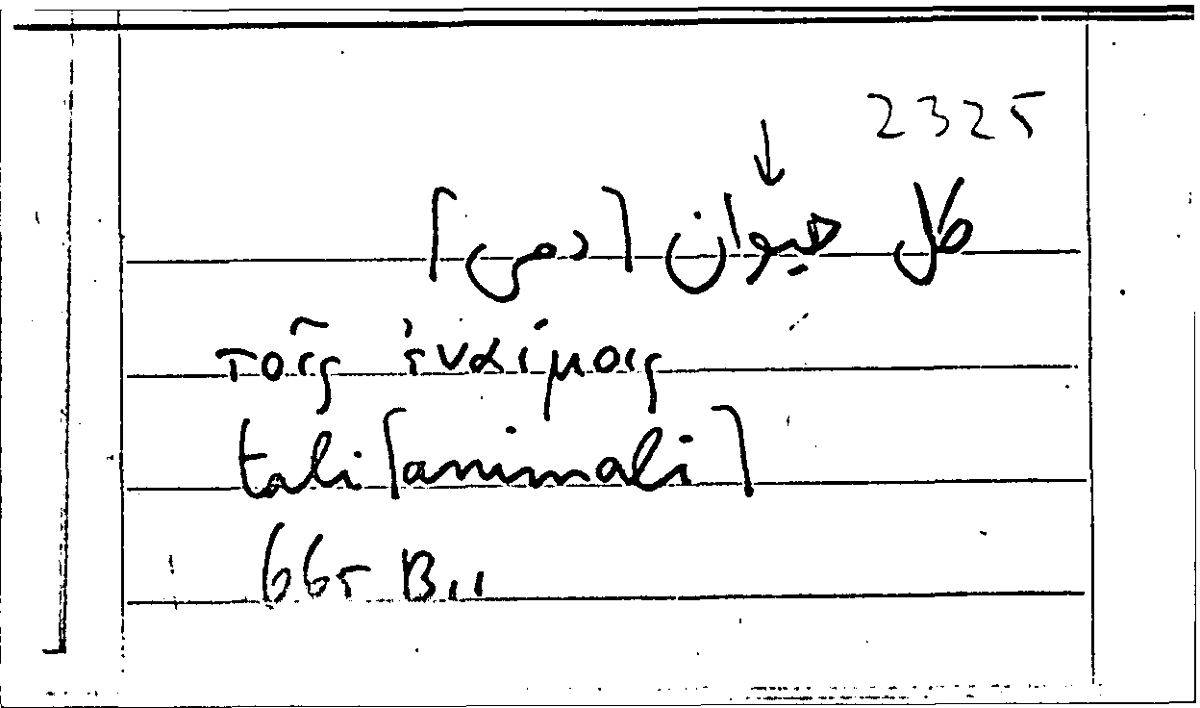 2325
↓
كل حيوان [دمى]
τοῖς ἐναίμοις
tali [animali]
665 B11